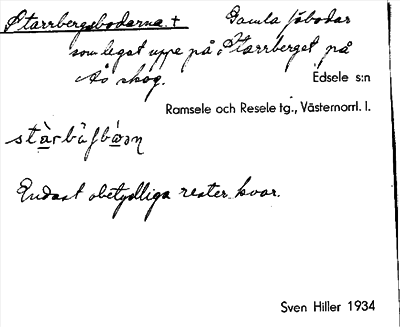 Starrbergsbodarna + Gamla fäbodar
som legat uppe på Starrberget på
Ås skog. Edsele s:n
Ramsele och Resele tg., Västernorrl. l.
Endast obetydliga rester kvar.
Sven Hiller 1934